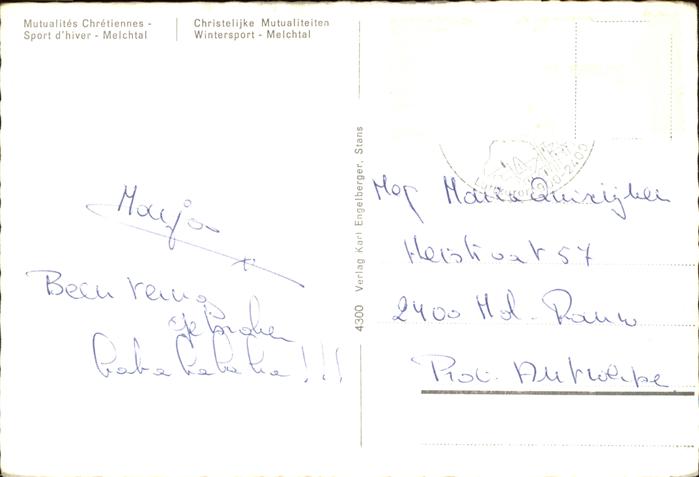 Mutualités Chrétiennes -
Sport d'hiver - Melchtal
Christelijke Mutualiteiten
Wintersport - Melchtal
4300 Verlag Karl Engelberger, Stans
Marja
Been
gebroken
hahahahaha!!!
Mej Maria
57
2400 Mol - Rauw
Prov. Antwerpe